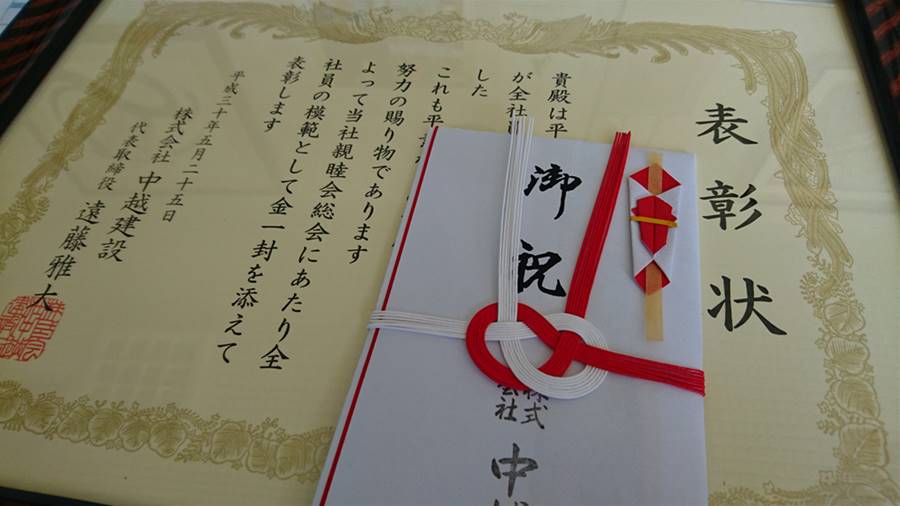 表彰状
貴殿は平
が全社
した
これも平
努力の賜り物であります
よって当社親睦会総会にあたり全
社員の模範として金一封を添えて
表彰します
平成三十年五月二十五日
株式会社 中越建設
代表取締役 遠藤雅大
御祝
株式
会社
中